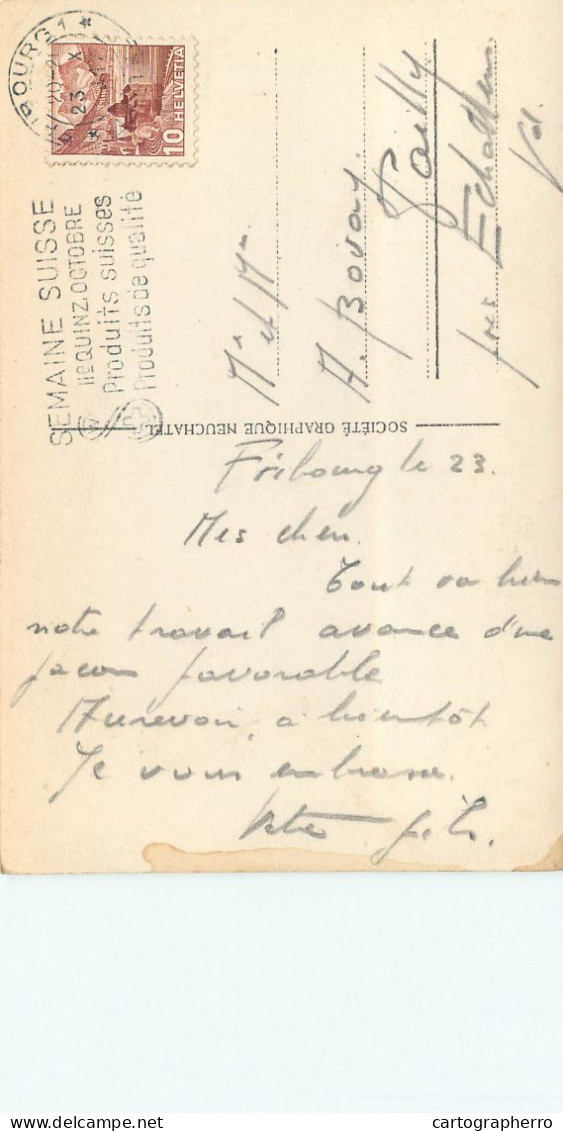 FRIBOURG 1
23 X
10 HELVETIA
SEMAINE SUISSE
IIe QUINZ. OCTOBRE
Produits suisses
Produits de qualité
SOCIÉTÉ GRAPHIQUE NEUCHATEL
Mr et Mme
A. Bovay
Sailly
près Echallens
Vd.
Fribourg le 23.
Mes chers.
Tout va bien
notre travail avance d'une
façon favorable
Aurevoir, à bientôt
Je vous embrasse.
Votre fils.
cartographerro